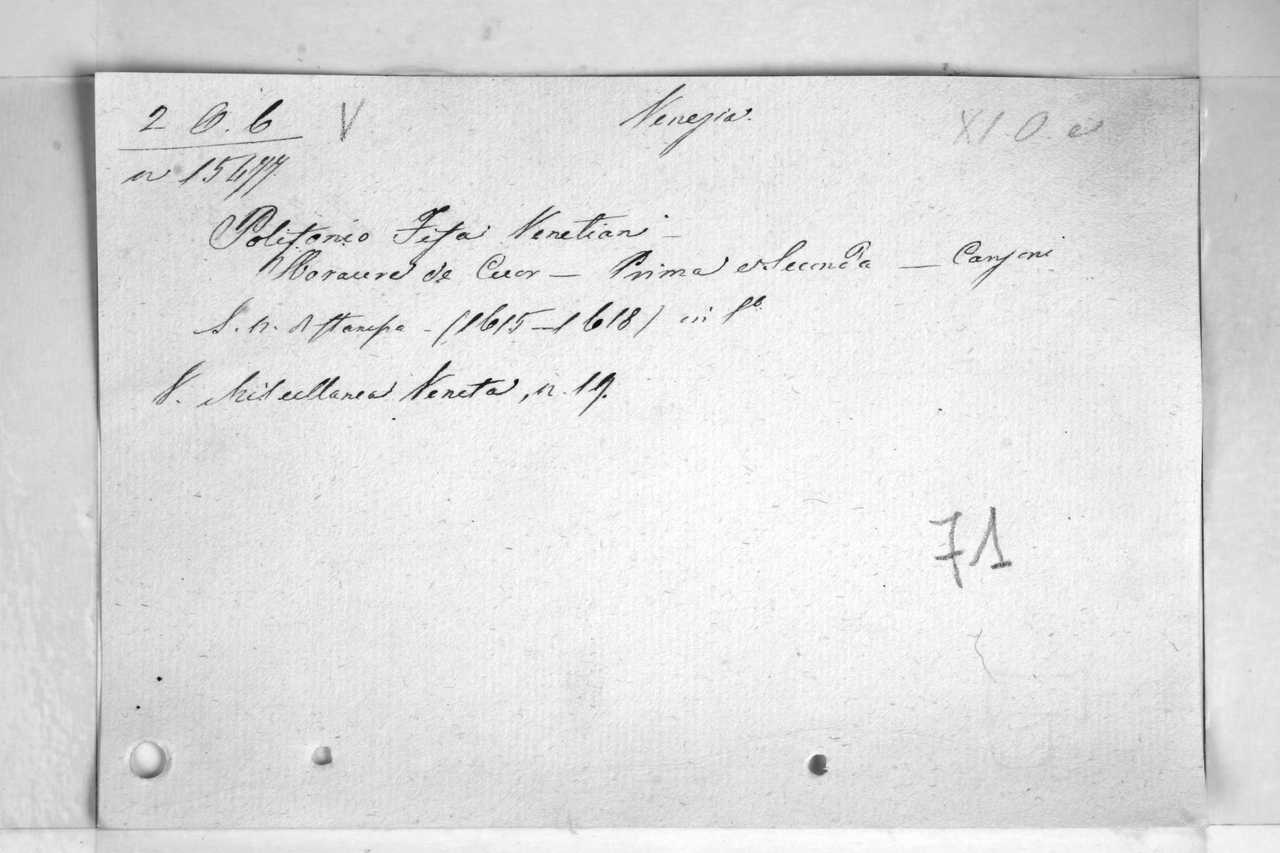 2 O. 6 V Venezia. XI O. e
n 15477
Polifonio Fifa Venetian –
de Cuor – Prima e Seconda – Canzoni
S. n. di stampa – (1615–1618) in 8º
V. Miscellanea Veneta, n. 19.
71